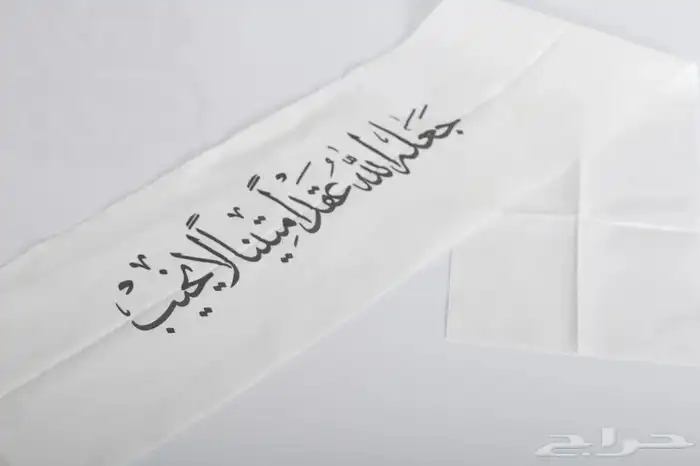 جعله الله عقدا متينا لا يخيب
حراج